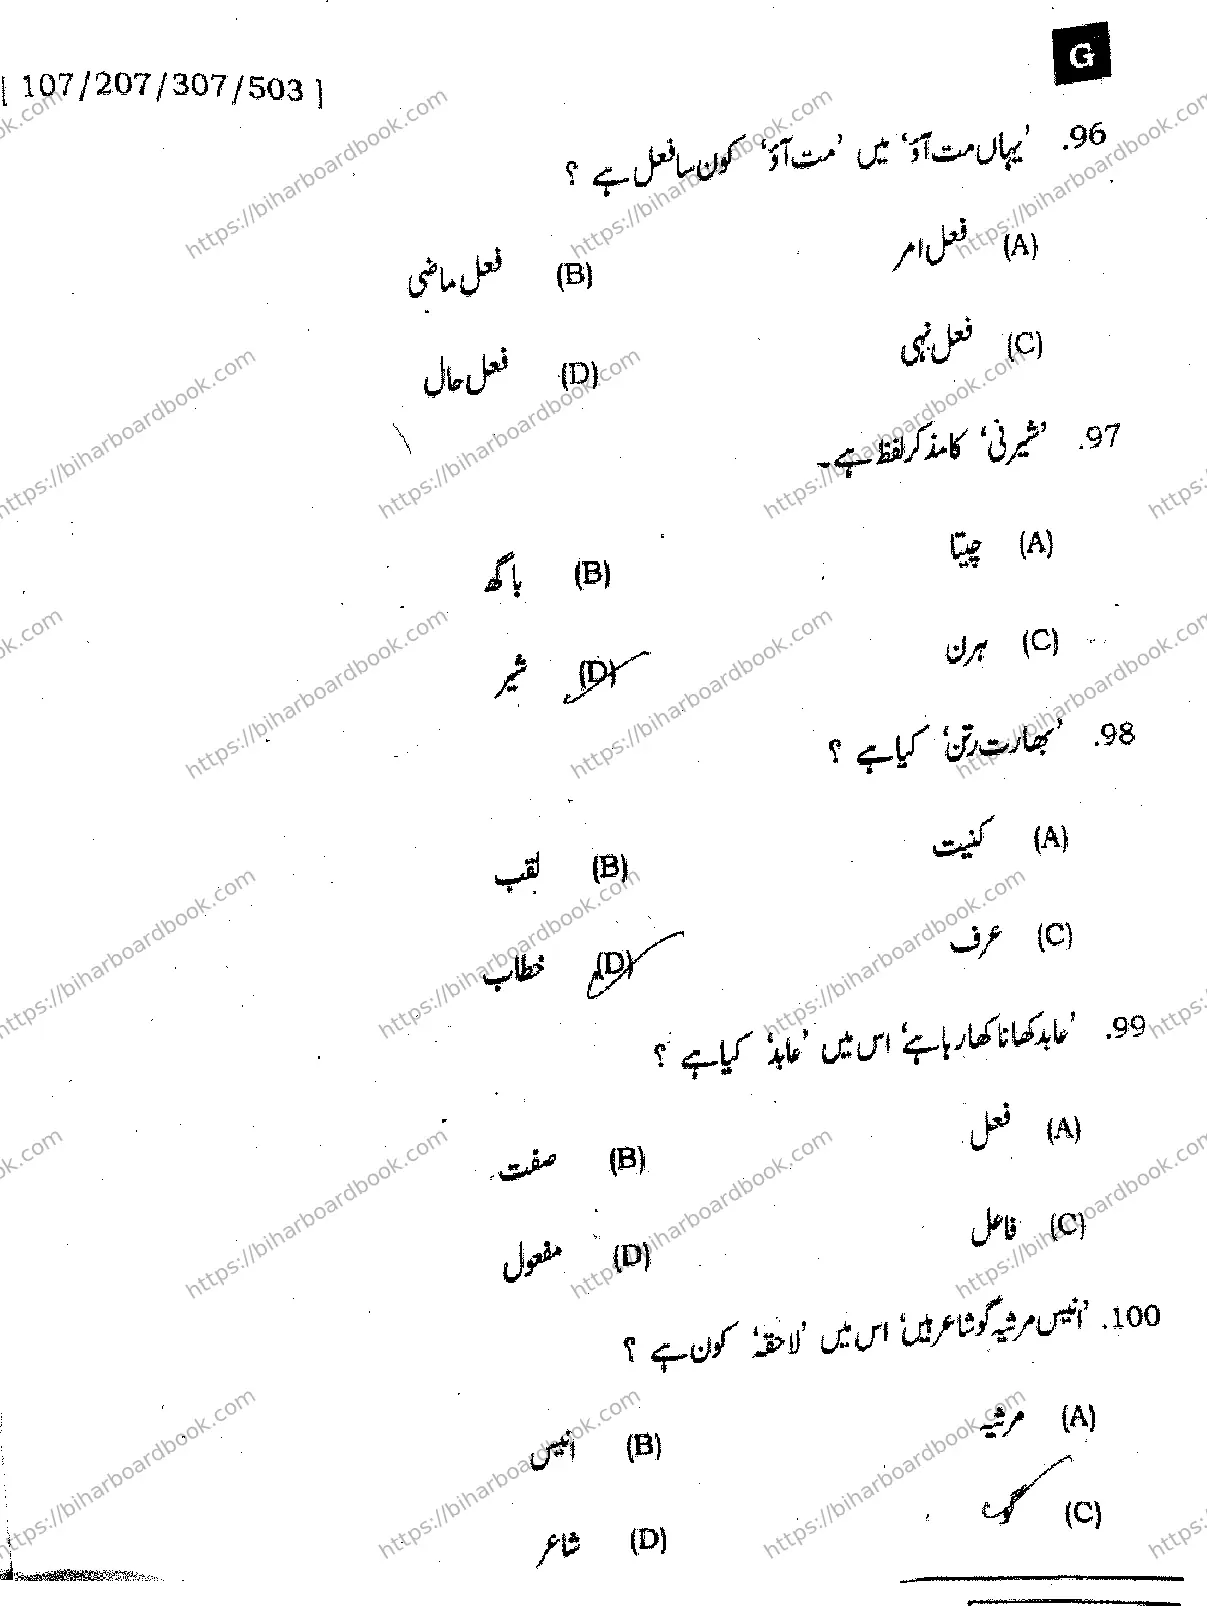 [ 107/207/307/503 ]
G
96. ’یہاں مت آؤ‘ میں ’مت آؤ‘ کون سا فعل ہے ؟
(A) فعل امر
(B) فعل ماضی
(C) فعل نہی
(D) فعل حال
97. ’شیرنی‘ کا مذکر لفظ ہے۔
(A) چیتا
(B) باگھ
(C) ہرن
(D) شیر
98. ’بھارت رتن‘ کیا ہے ؟
(A) کنیت
(B) لقب
(C) عرف
(D) خطاب
99. ’عابد کھانا کھا رہا ہے‘ اس میں ’عابد‘ کیا ہے ؟
(A) فعل
(B) صفت
(C) فاعل
(D) مفعول
100. ’انیس مرثیہ گو شاعر ہیں‘ اس میں ’لاحقہ‘ کون ہے ؟
(A) مرثیہ
(B) انیس
(C) گو
(D) شاعر
https://biharboardbook.com